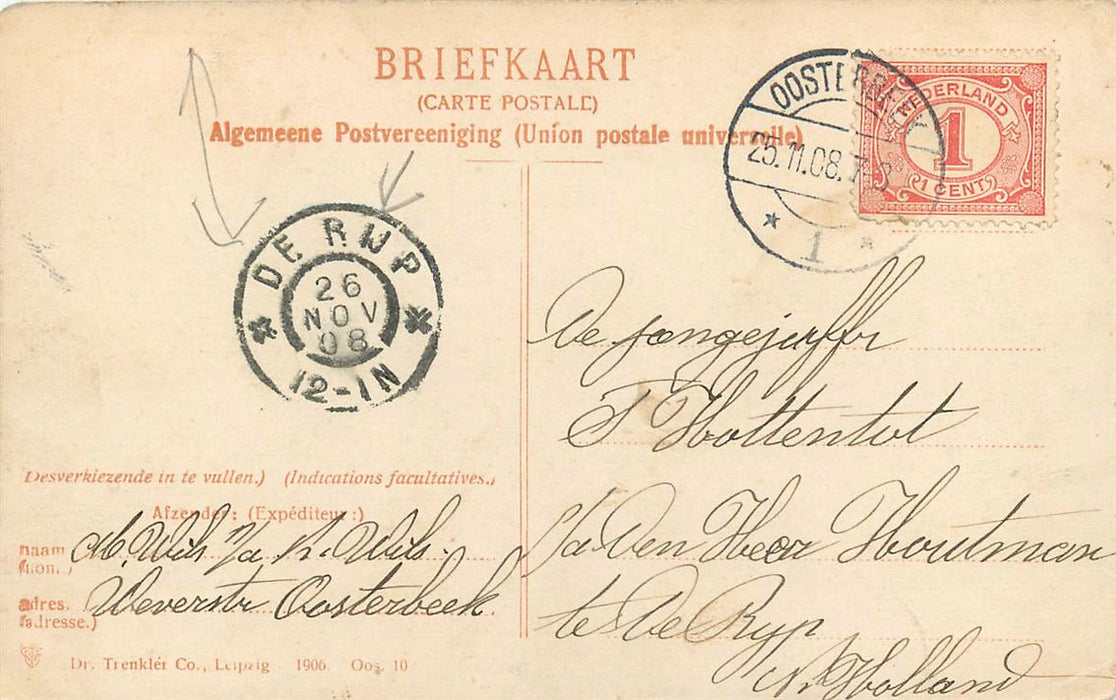 BRIEFKAART
(CARTE POSTALE)
Algemeene Postvereeniging (Union postale universelle)
OOSTERBEEK
25.11.08.7-8
1
NEDERLAND
1
1 CENT
DE RIJP
26
NOV
08
12-IN
De jongejuffr
T Hottentot
p/a Den Heer Houtman
te De Ryp
N. Holland
Desverkiezende in te vullen.) (Indications facultatives.)
Afzender: (Expéditeur:)
naam M. Wils p/a K. Wils.
(nom.)
adres. Weverstr Oosterbeek
(adresse.)
Dr. Trenkler Co., Leipzig 1906. Oos. 10